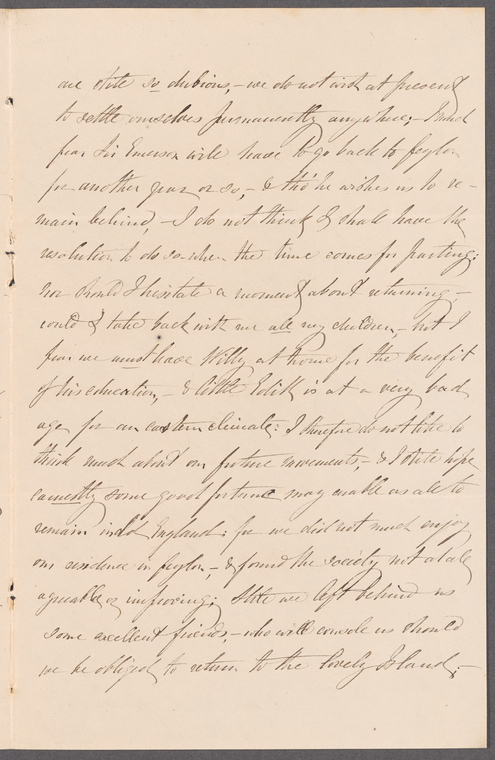 are still so dubious, - we do not wish at present
to settle ourselves permanently anywhere, - I much
fear Sir Emerson will have to go back to Ceylon
for another year or so, - & tho' he wishes us to re-
main behind, - I do not think I shall have the
resolution to do so when the time comes for parting;
nor should I hesitate a moment about returning, -
could I take back with me all my children, - but I
fear we must have Willy at home for the benefit
of his education, - & little Edith is at a very bad
age for an eastern climate: I therefore do not like to
think much about our future movements, - & I still hope
earnestly some good fortune may enable us all to
remain in old England; for we did not much enjoy
our residence in Ceylon, - & found the society not at all
agreeable or improving; still we left behind us
some excellent friends, - who will console us should
we be obliged to return to the lovely Island; -